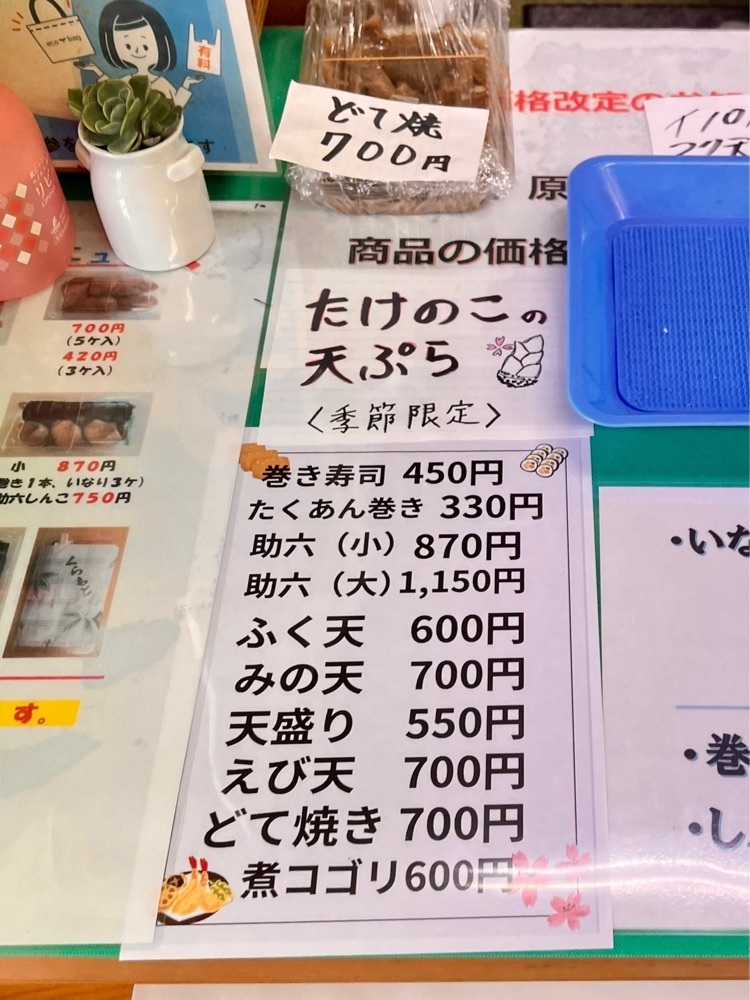 eco bag
有料
どて焼
700円
価格改定の
イ10
原
商品の価格
たけのこの
天ぷら
〈季節限定〉
巻き寿司 450円
たくあん巻き 330円
助六（小）870円
助六（大）1,150円
ふく天 600円
みの天 700円
天盛り 550円
えび天 700円
どて焼き 700円
煮コゴリ600円
ニュー
700円
(5ケ入)
420円
(3ケ入)
小 870円
巻き1本、いなり3ケ)
助六しんこ750円
す。
・いな
・巻
・し